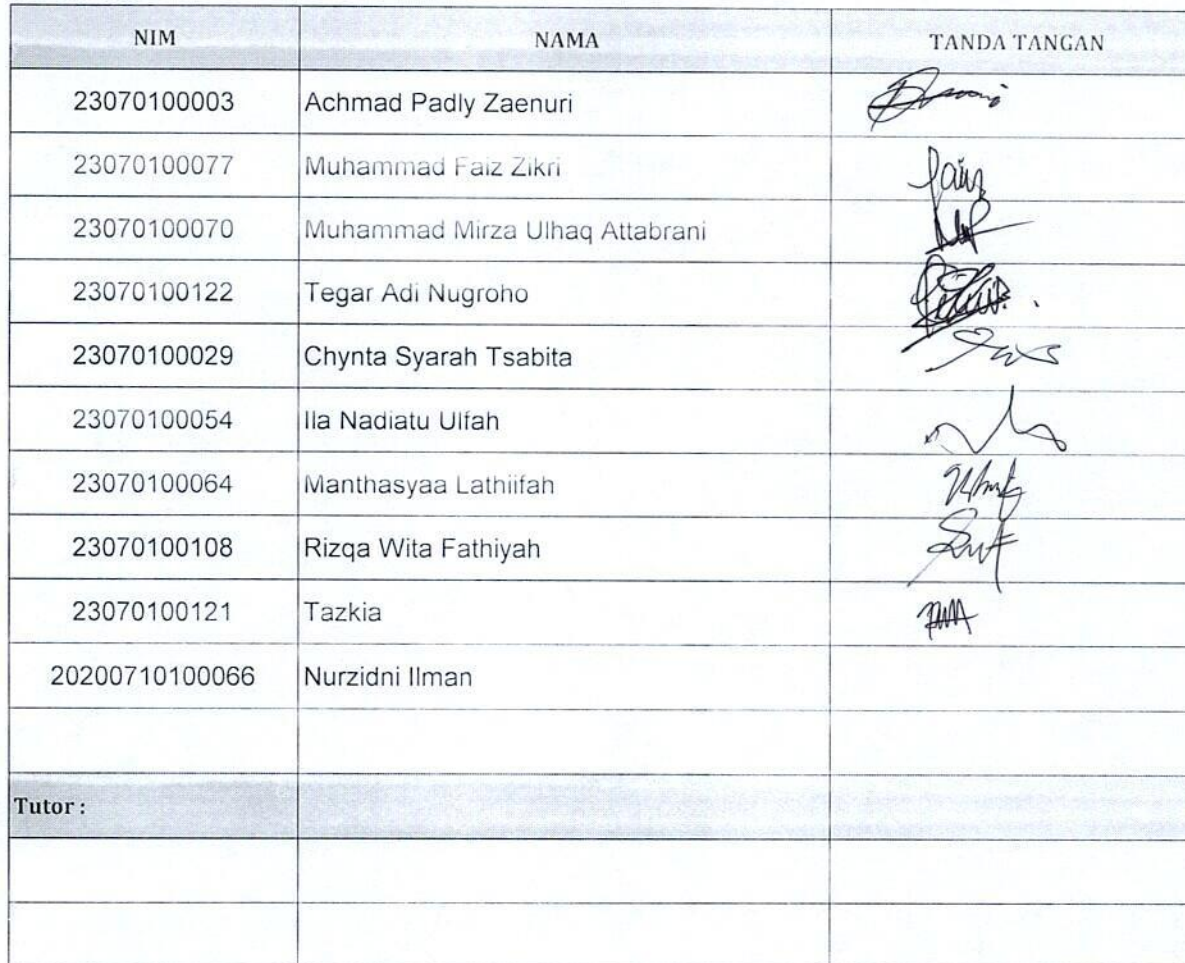 NIM NAMA TANDA TANGAN
23070100003 Achmad Padly Zaenuri
23070100077 Muhammad Faiz Zikri
23070100070 Muhammad Mirza Ulhaq Attabrani
23070100122 Tegar Adi Nugroho
23070100029 Chynta Syarah Tsabita
23070100054 Ila Nadiatu Ulfah
23070100064 Manthasyaa Lathiifah
23070100108 Rizqa Wita Fathiyah
23070100121 Tazkia
20200710100066 Nurzidni Ilman
Tutor :